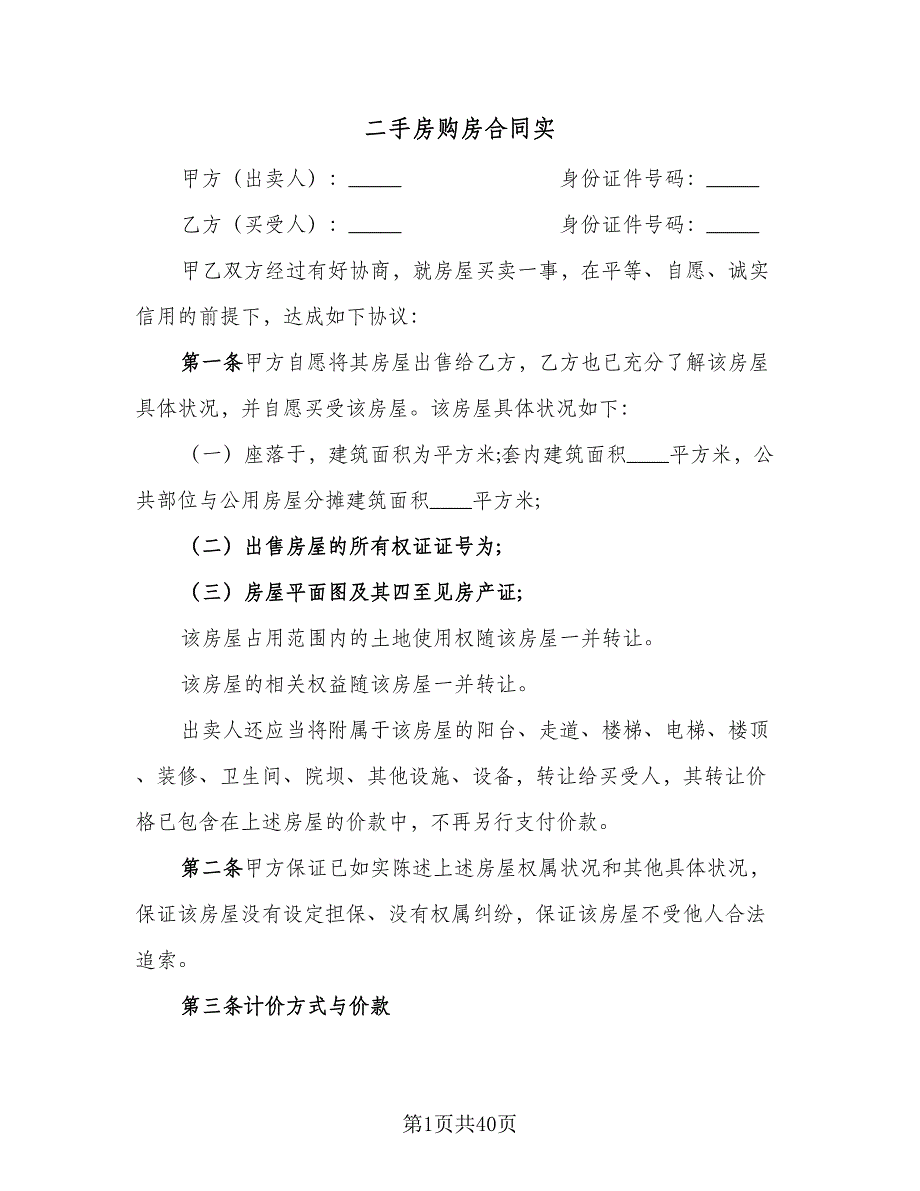 二手房购房合同实
甲方（出卖人）：_____ 身份证件号码：_____
乙方（买受人）：_____ 身份证件号码：_____
甲乙双方经过有好协商，就房屋买卖一事，在平等、自愿、诚实
信用的前提下，达成如下协议：
第一条甲方自愿将其房屋出售给乙方，乙方也已充分了解该房屋
具体状况，并自愿买受该房屋。该房屋具体状况如下：
（一）座落于，建筑面积为平方米;套内建筑面积____平方米，公
共部位与公用房屋分摊建筑面积____平方米;
（二）出售房屋的所有权证证号为;
（三）房屋平面图及其四至见房产证;
该房屋占用范围内的土地使用权随该房屋一并转让。
该房屋的相关权益随该房屋一并转让。
出卖人还应当将附属于该房屋的阳台、走道、楼梯、电梯、楼顶
、装修、卫生间、院坝、其他设施、设备，转让给买受人，其转让价
格已包含在上述房屋的价款中，不再另行支付价款。
第二条甲方保证已如实陈述上述房屋权属状况和其他具体状况，
保证该房屋没有设定担保、没有权属纠纷，保证该房屋不受他人合法
追索。
第三条计价方式与价款
第1页共40页